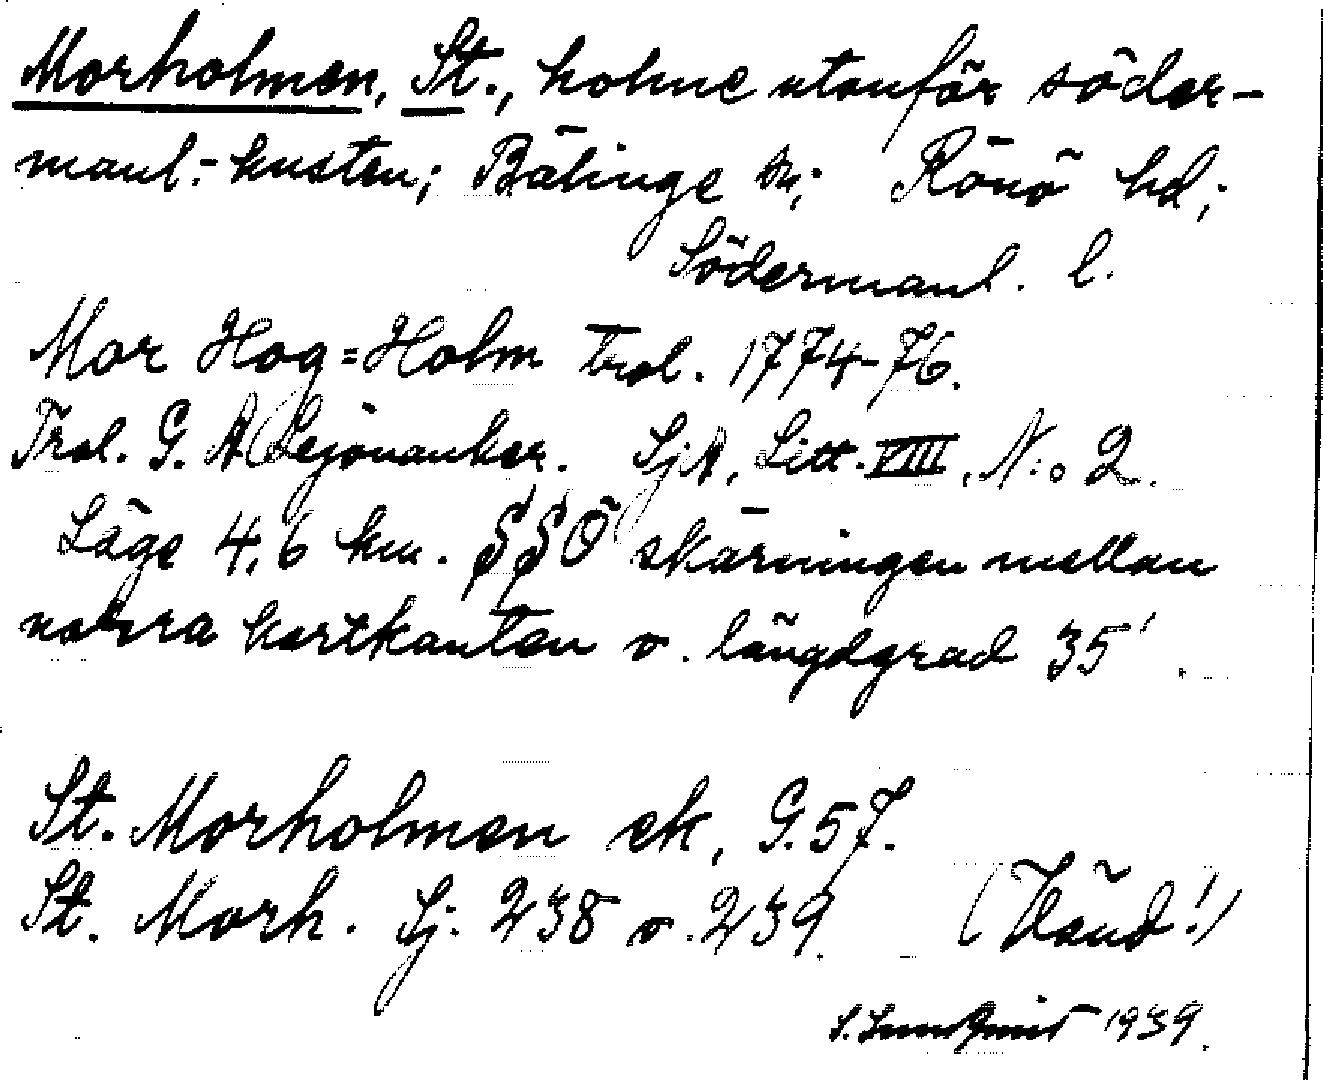 Morholmen, St., holme utanför söder-
manl.-kusten; Bälinge sn; Rönö hd;
Södermanl. l.
Mor Hog=Holm trol. 1774-76.
Trol. G. A Lejonanker. SjA, Litt. VIII, N:o 2.
Läge 4,6 km. SSÖ skärningen mellan
norra kartkanten o. längdgrad 35'.
St. Morholmen ek, G. 57.
St. Morh. Sj. 238 o. 239. (Vänd!)
S. Lundqvist 1939.